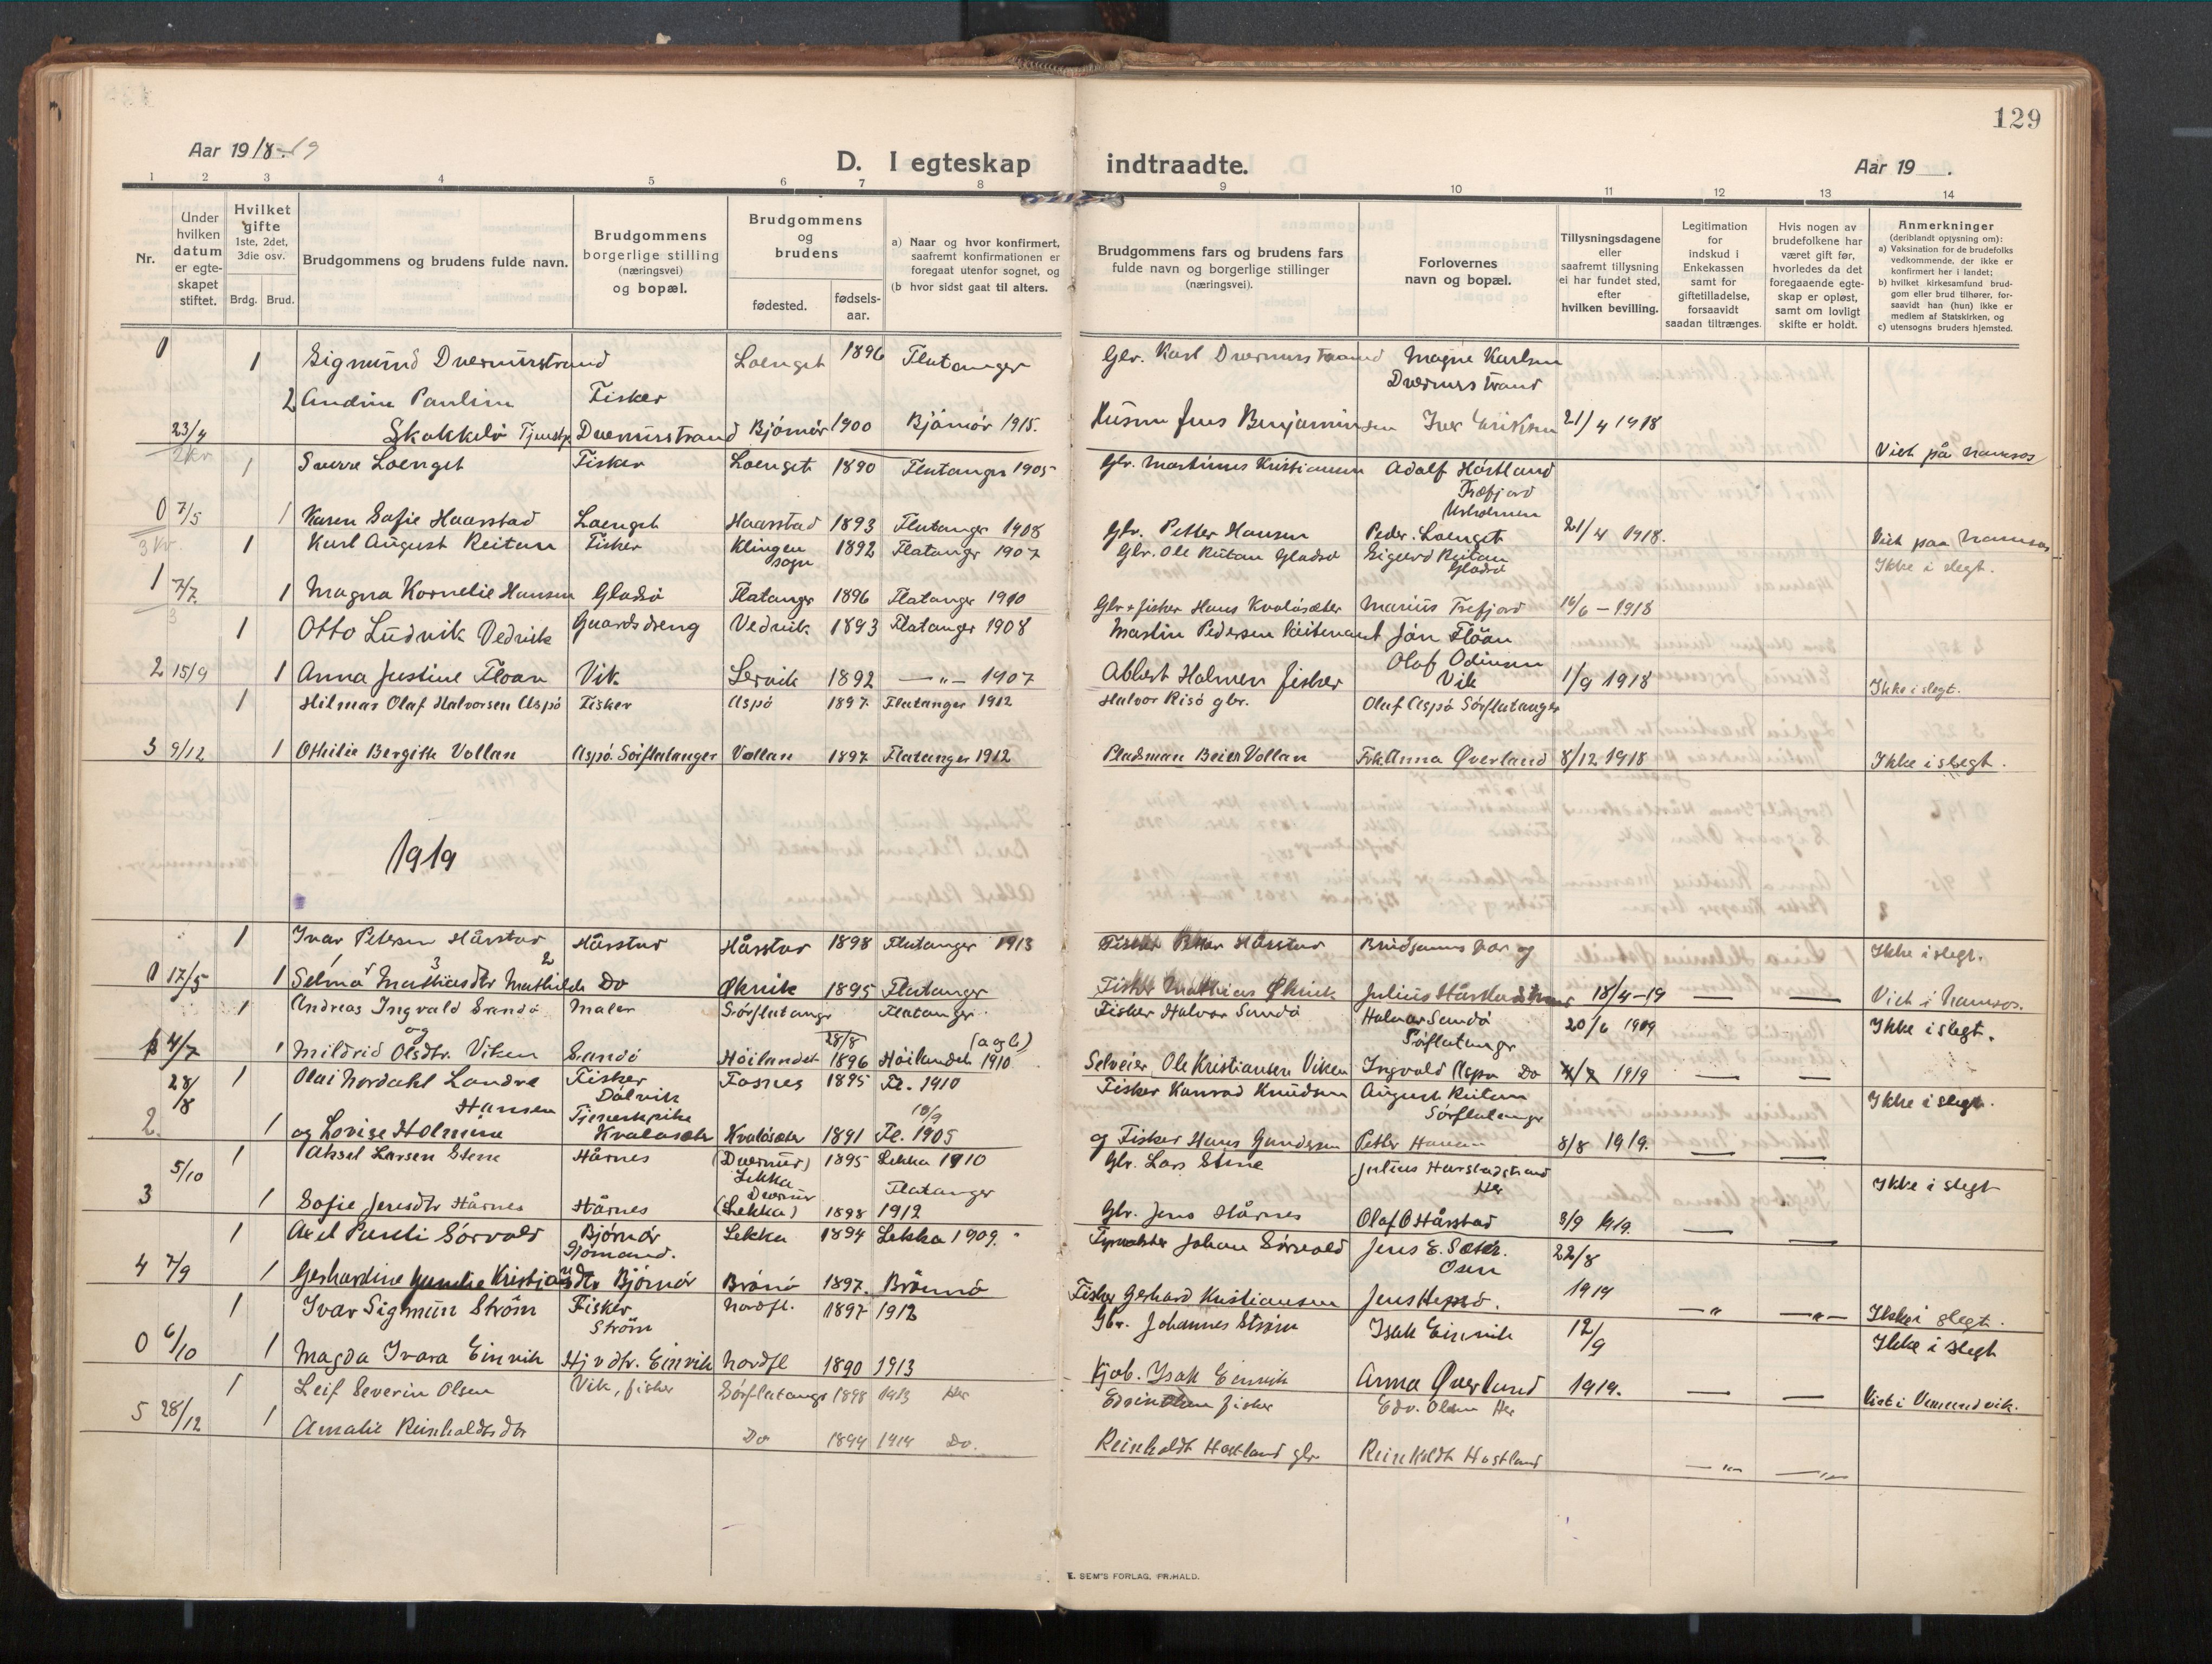 129
Aar 1918-19
D. I egteskap
indtraadte.
Aar 19 .
1 2 3 4 5 6 7 8 9 10 11 12 13 14
Nr.
Under hvilken datum er egte-skapet stiftet.
Hvilket gifte 1ste, 2det, 3die osv.
Brdg. Brud.
Brudgommens og brudens fulde navn.
Brudgommens borgerlige stilling (næringsvei) og bopæl.
Brudgommens og brudens
fødested. fødsels-aar.
a) Naar og hvor konfirmert, saafremt konfirmationen er foregaat utenfor sognet, og
(b hvor sidst gaat til alters.
Brudgommens fars og brudens fars fulde navn og borgerlige stillinger (næringsvei).
Forlovernes navn og bopæl.
Tillysningsdagene eller saafremt tillysning ei har fundet sted, efter hvilken bevilling.
Legitimation for indskud i Enkekassen samt for giftetilladelse, forsaavidt saadan tiltrænges.
Hvis nogen av brudefolkene har været gift før, hvorledes da det foregaaende egte-skap er opløst, samt om lovligt skifte er holdt.
Anmerkninger (deriblandt opjysning om):
a) Vaksination for de brudefolks vedkommende, der ikke er konfirmert her i landet;
b) hvilket kirkesamfund brud-gom eller brud tilhører, for-saavidt han (hun) ikke er medlem af Statskirken, og
c) utensogns bruders hjemsted.
0 1 Sigmund Dværnesstrand Loenget 1896 Flatanger Gbr. Karl Dværnesstrand Magne Karlsen
Dværnesstrand
2 Andrine Pauline Fisker
23/4 Skakkelö Tjenstp. Dværnesstrand Björnör 1900 Björnör 1915. Husm Jens Benjaminsen Iver Eriksen 21/4 1918
Viet på Namsos
2 Kr 1 Sverre Loenget Fisker Loenget 1890 Flatanger 1905 Gbr. Martinus Kristiansen Adolf Hårstland
Træfjord
0 7/5 1 Karen Sofie Haarstad Loenget Haarstad 1893 Flatanger 1908 Gbr. Petter Hansen Peder Loenget 21/4 1918. Viet paa Namsos
3 Kr 1 Karl August Reitan Fisker Klingen sogn 1892 Flatanger 1907 Gbr. Ole Reitan Gladsö Sigurd Reitan
Gladsö Ikke i slegt.
1 7/7. 1 Magna Kornelie Hansen Gladsö Flatanger 1896 Flatanger 1910 Gbr + fisker Hans Kvalösæter Marius Trefjord 16/6 - 1918
3 1 Otto Ludvik Vedvik Gaardsdreng Vedvik 1893 Flatanger 1908 Martin Pedersen Jön Flöan
2 15/9 1 Anna Justine Floan Vik Servik 1892 — " — 1907 Albert Holmen fisker Olaf Odinsen
Vik 1/9 1918 Ikke i slegt.
1 Hilmar Olaf Halvorsen Aspö Fisker Aspö 1897 Flatanger 1912 Halvor Risö gbr. Olaf Aspö Sörflatanger
3 9/12 1 Othilie Bergitte Vollan Aspö. Sörflatanger Vollan 1897 Flatanger 1912 Pladsman Beier Vollan Frk. Anna Øverland 8/12 1918 Ikke i slegt.
1919
1 Ivar Petersen Hårstad Hårstad Hårstad 1898 Flatanger 1913 Fisker Petter Hårstad Brudgoms far og Ikke i slegt.
1 3 2
0 17/5 1 Selma Mathiasdtr Mathilde Do Øknik 1895 Flatanger Fisker Mathias Øknik Julius Hårstadstrand 18/4-19 — — Viet i Namsos.
1 Andreas Ingvald Sandö Maler Sörflatanger Flatanger Fisker Halvor Sandö Halvor Sandö
Sörflatanger 20/6 1919 Ikke i slegt.
og 28/8 (a og b)
1 4/7 1 Mildrid Olsdtr. Viken Sandö Höilandet 1896 Höilandet 1910 Selveier Ole Kristiansen Viken Ingvald Aspö Do 4/7 1919 — —
28/8 1 Olai Nordahl Landre Fisker Fosnes 1895 Fl. 1910 Fisker Konrad Knudsen August Reitan
Hansen Dalvik Sörflatanger Ikke i slegt.
Tjenestpike 10/9
2. 1 og Lovise Holmene Kvalösæter Kvalösæter 1891 Fl. 1905 og Fisker Hans Gundersen Petter Hansen 8/8 1919. — —
5/10 1 Aksel Larsen Stene Hårnes (Dværnes) Lekka 1895 Lekka 1910 Gbr. Lars Stene Julius Harstadstrand
Her Ikke i slegt
3 1 Sofie Jensdtr Hårnes Hårnes Dværnes (Lekka) 1898 Flatanger 1912 Gbr. Jens Hårnes Olaf O Hårstad 3/9 1919. — —
1 Axel Pareli Sörvold Björnör Lekka 1894 Lekka 1909. Fyrvokter Johan Sörvold Jens E. Sæter.
Sjömand. Osen 22/8
4 7/9 1 Gerhardine Kristiansdtr Björnör Brönö 1897. Brönnö Fisker Gerhard Kristiansen Jens Hepsö. 1919 — " — — " — Ikke i slegt.
1 Ivar Sigmun Ström Fisker
Ström Nordfl. 1897 1912 Gbr. Johannes Ström Isak Einvik 12/9 Ikke i slegt
0 6/10 1 Magda Ivara Einvik Hj v dtr. Einvik Nordfl 1890 1913 Kjöb. Isak Einvik Anna Øverland 1919. — — Viet i Vemundvik.
1 Leif Severin Olsen Vik, fisker Sörflatanger 1898 1913 Her Edvin Olsen fisker Edv. Olsen Her
5 28/12 1 Amalie Reinholdtsdtr Do 1899 1914 Do. Reinholdt Hastland gbr Reinholdt Hastland — " — — " —
E. SEM'S FORLAG, FR.HALD.